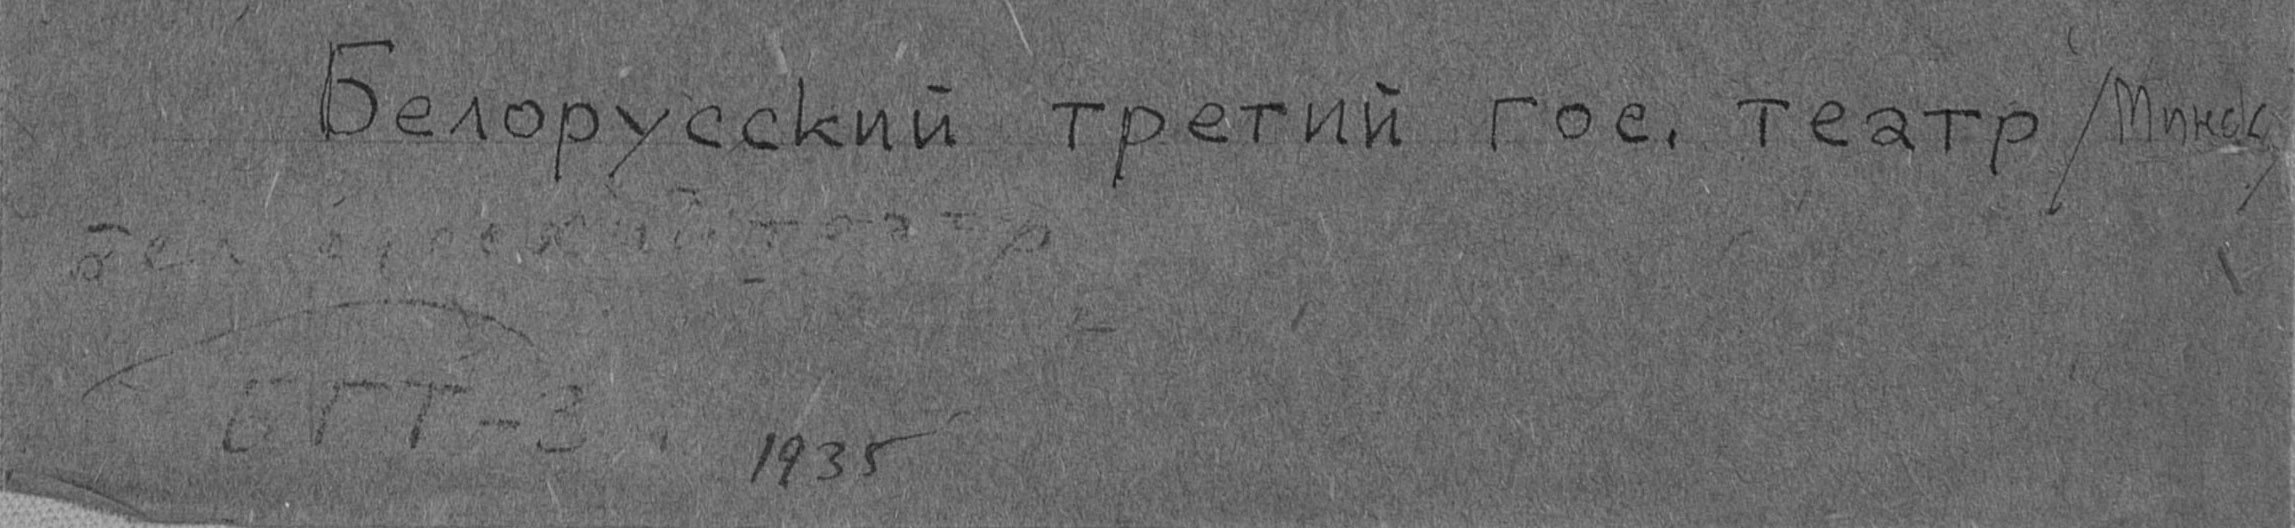 Белорусский третий гос. театр /Минск/
Белорусский театр
БГТ-3.
1935